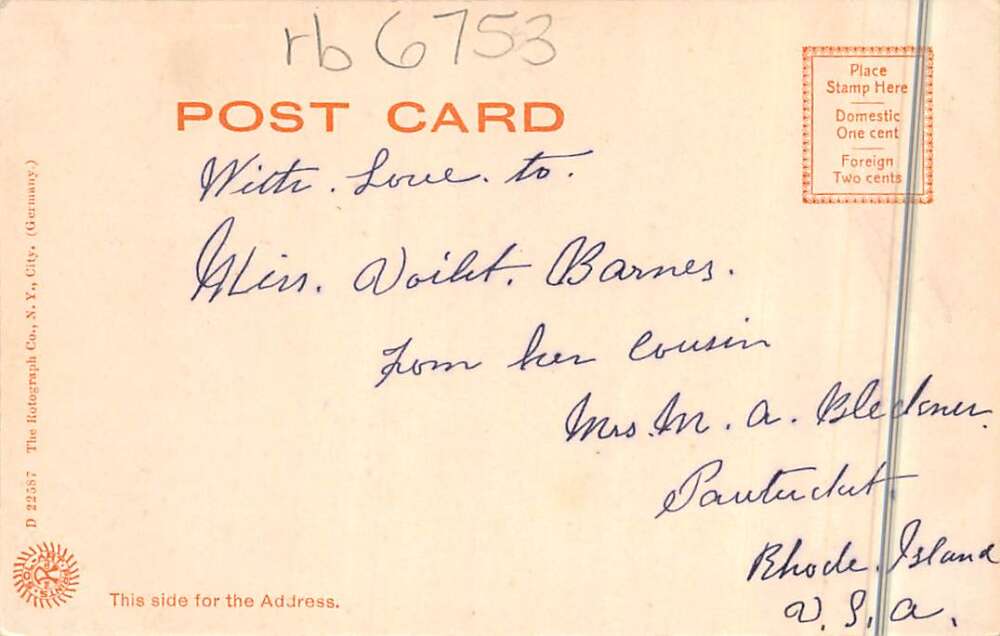 rb 6753
POST CARD
Place
Stamp Here
Domestic
One cent
Foreign
Two cents
With. Love. to.
Miss. Voilet. Barnes.
from her Cousin
Mrs. M. A.
Pawtucket
Rhode. Island
U. S. A.
D 22587 The Rotograph Co., N. Y., City. (Germany.)
This side for the Address.